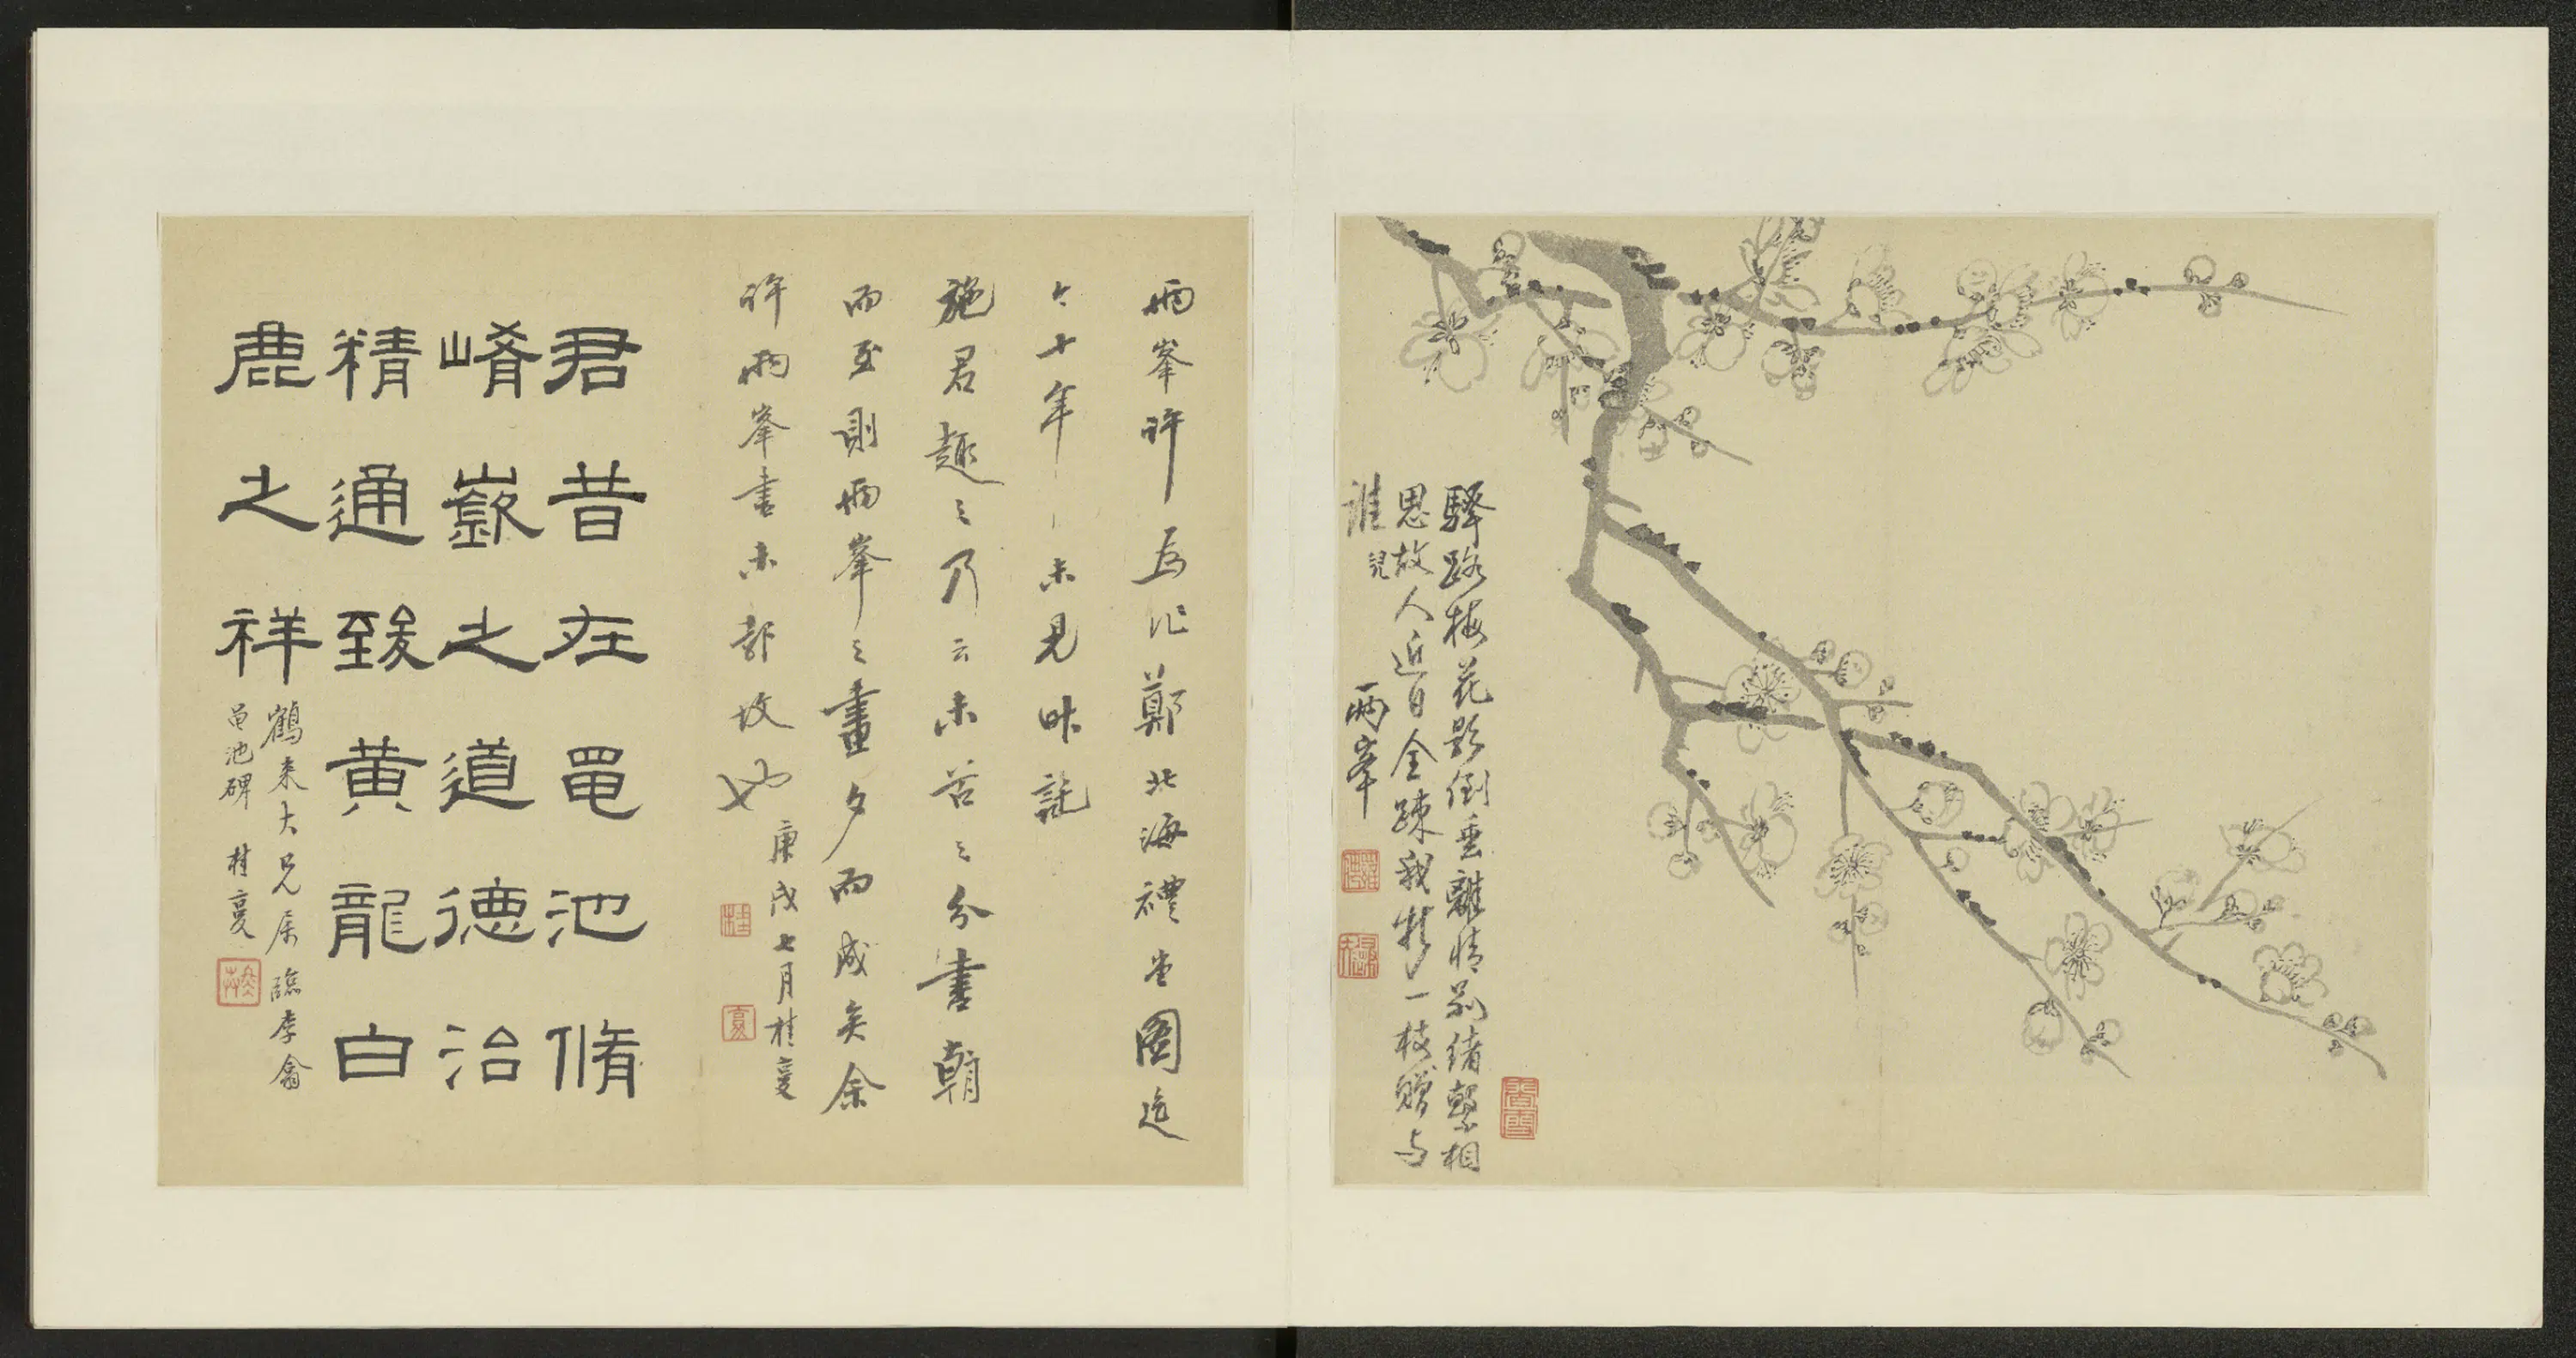 驛路梅花影倒垂離情別緒繫相
思故人近日全疎我折一枝贈与
誰兒
兩峯
香雪
兩峯許為作鄭北海禮堂圖迄
今十年未見昨託
施君趣之乃云未若之分書朝
而至則兩峯之畫夕而成矣余
許兩峯書未報故也
庚戌七月桂馥
桂
馥
君昔在黽池脩
崤嶔之道德治
精通致黄龍白
鹿之祥
鶴來大兄属臨李翕
黽池碑 桂馥